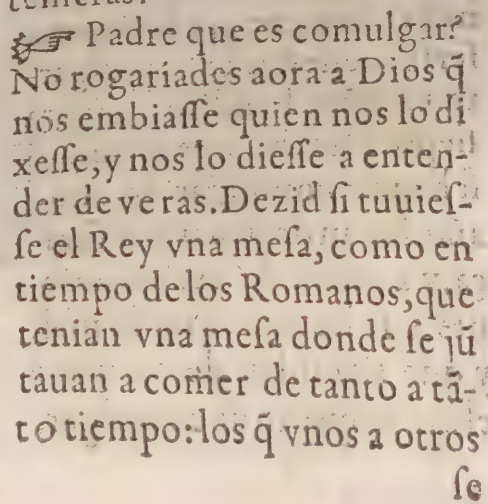 ☞ Padre que es comulgar?
No rogariades aora a Dios q̃
nos embiaſſe quien nos lo di
xeſſe, y nos lo dieſſe a enten-
der de veras. Dezid ſi tuuieſ-
ſe el Rey vna meſa, como en
tiempo delos Romanos, que
tenian vna meſa donde ſe jũ
tauan a comer de tanto a tã-
to tiempo: los q̃ vnos a otros
ſe